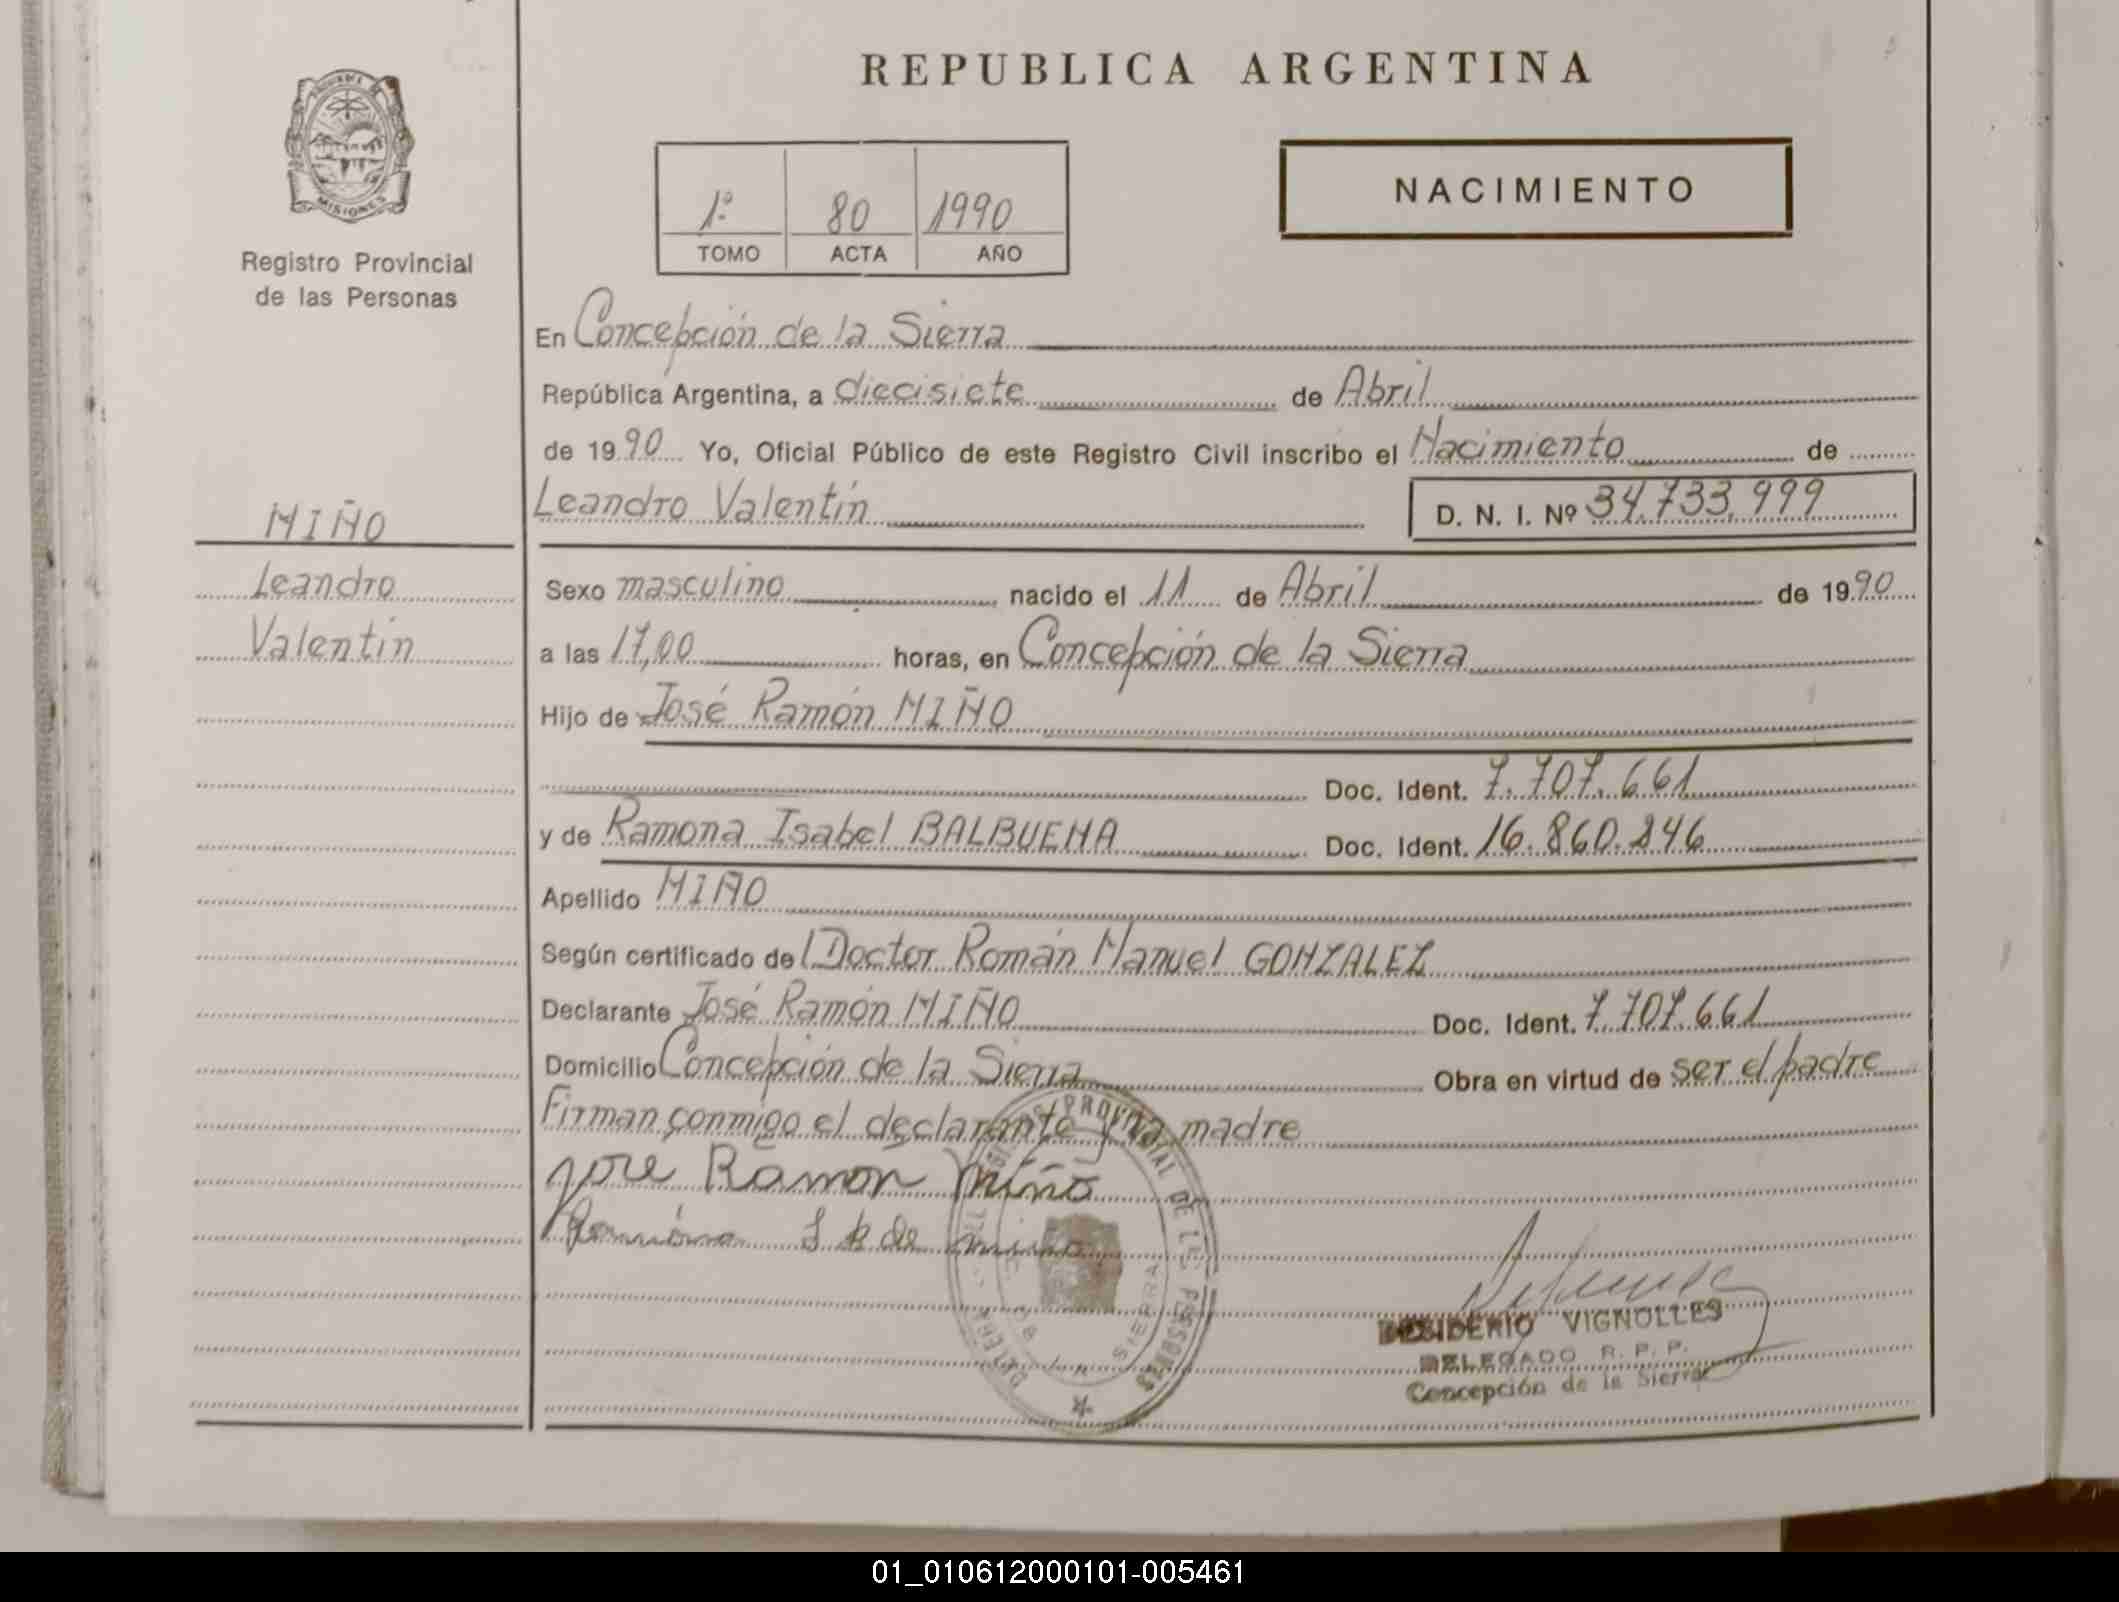 REPUBLICA ARGENTINA
PROVINCIA DE
MISIONES
Registro Provincial
de las Personas
1º 80 1990
TOMO ACTA AÑO
NACIMIENTO
En Concepción de la Sierra
República Argentina, a diecisiete de Abril
de 1990 Yo, Oficial Público de este Registro Civil inscribo el Nacimiento de
Leandro Valentín D. N. I. Nº 34.733.999
MIÑO
Leandro
Valentín
Sexo masculino nacido el 11 de Abril de 1990
a las 17,00 horas, en Concepción de la Sierra
Hijo de José Ramón MIÑO
Doc. Ident. 7.707.661
y de Ramona Isabel BALBUENA Doc. Ident. 16.860.846
Apellido MIÑO
Según certificado de l Doctor Román Manuel GONZALEZ
Declarante José Ramón MIÑO Doc. Ident. 7.707.661
Domicilio Concepción de la Sierra Obra en virtud de ser el padre
Firman conmigo el declarante y la madre
Jose Ramon Miño
Ramona de miño
PROVINCIAL DE LAS PERSONAS
SIERRA
DESIDERIO VIGNOLLES
DELEGADO R. P. P.
Concepción de la Sierra
01_010612000101-005461